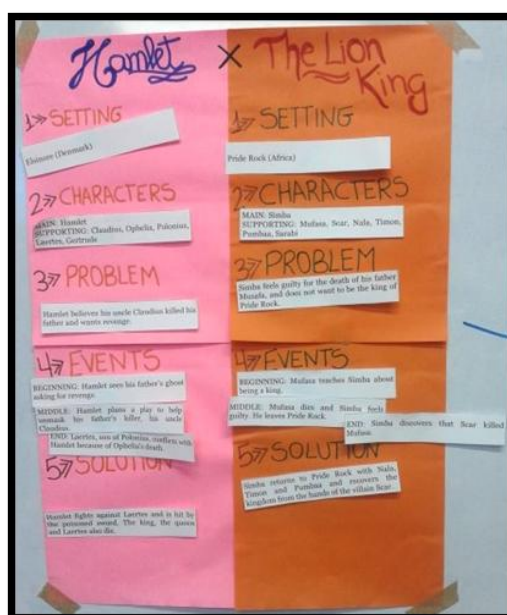 Hamlet X The Lion King
1» SETTING
Elsinore (Denmark)
2» CHARACTERS
MAIN: Hamlet
SUPPORTING: Claudius, Ophelia, Polonius,
Laertes, Gertrude
3» PROBLEM
Hamlet believes his uncle Claudius killed his
father and wants revenge.
4» EVENTS
BEGINNING: Hamlet sees his father's ghost
asking for revenge.
MIDDLE: Hamlet plans a play to help
unmask his father's killer, his uncle
Claudius.
END: Laertes, son of Polonius,
Hamlet because of Ophelia's death.
5» SOLUTION
Hamlet fights against Laertes and is hit by
the poisoned sword. The king, the queen
and Laertes also die.
1» SETTING
Pride Rock (Africa)
2» CHARACTERS
MAIN: Simba
SUPPORTING: Mufasa, Scar, Nala, Timon,
Pumbaa, Sarabi
3» PROBLEM
Simba feels guilty for the death of his father
Mufasa, and does not want to be the king of
Pride Rock.
4» EVENTS
BEGINNING: Mufasa teaches Simba about
being a king.
MIDDLE: Mufasa dies and Simba feels
guilty. He leaves Pride Rock.
END: Simba discovers that Scar killed
Mufasa.
5» SOLUTION
Simba returns to Pride Rock with Nala,
Timon and Pumbaa and recovers the
kingdom from the hands of the villain Scar.